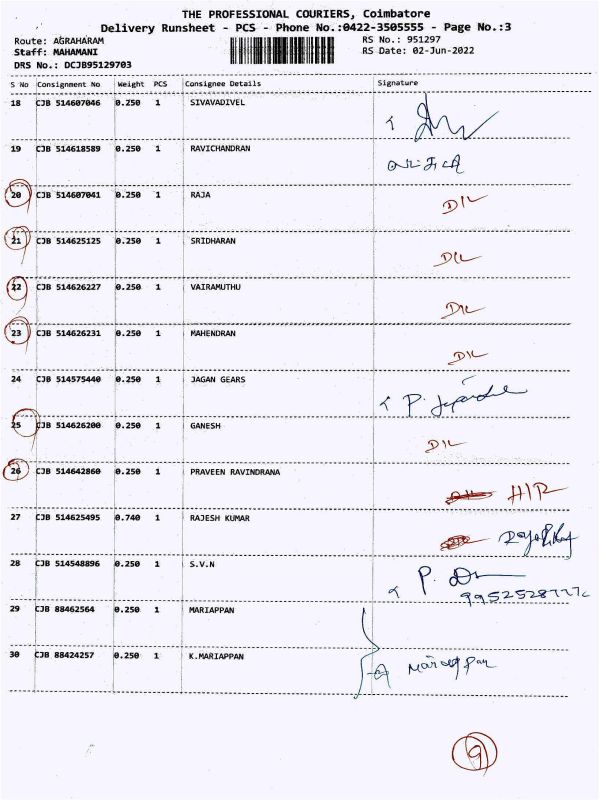 THE PROFESSIONAL COURIERS, Coimbatore
Delivery Runsheet - PCS - Phone No.:0422-3505555 - Page No.:3
Route: AGRAHARAM RS No.: 951297
Staff: MAHAMANI RS Date: 02-Jun-2022
DRS No.: DCJB95129703
S No Consignment No Weight PCS Consignee Details Signature
18 CJB 514607046 0.250 1 SIVAVADIVEL
19 CJB 514618589 0.250 1 RAVICHANDRAN
20 CJB 514607041 0.250 1 RAJA D/L
21 CJB 514625125 0.250 1 SRIDHARAN D/L
22 CJB 514626227 0.250 1 VAIRAMUTHU D/L
23 CJB 514626231 0.250 1 MAHENDRAN D/L
24 CJB 514575440 0.250 1 JAGAN GEARS P.
25 CJB 514626200 0.250 1 GANESH D/L
26 CJB 514642860 0.250 1 PRAVEEN RAVINDRANA
27 CJB 514625495 0.740 1 RAJESH KUMAR
28 CJB 514548896 0.250 1 S.V.N P.
29 CJB 88462564 0.250 1 MARIAPPAN
30 CJB 88424257 0.250 1 K.MARIAPPAN Mariappan
9